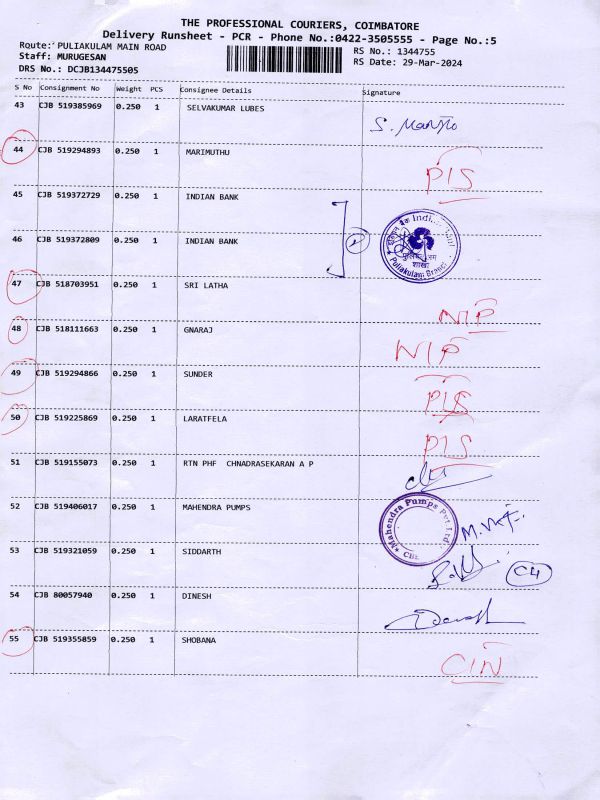 THE PROFESSIONAL COURIERS, COIMBATORE
Delivery Runsheet - PCR - Phone No.:0422-3505555 - Page No.:5
Route: PULIAKULAM MAIN ROAD
Staff: MURUGESAN
DRS No.: DCJB134475505
RS No.: 1344755
RS Date: 29-Mar-2024
S No Consignment No Weight PCS Consignee Details Signature
43 CJB 519385969 0.250 1 SELVAKUMAR LUBES
44 CJB 519294893 0.250 1 MARIMUTHU PIS
45 CJB 519372729 0.250 1 INDIAN BANK
46 CJB 519372809 0.250 1 INDIAN BANK
Puliakulam Branch
शाखा
47 CJB 518703951 0.250 1 SRI LATHA NIP
48 CJB 518111663 0.250 1 GNARAJ NIP
49 CJB 519294866 0.250 1 SUNDER PIS
50 CJB 519225869 0.250 1 LARATFELA PIS
51 CJB 519155073 0.250 1 RTN PHF CHNADRASEKARAN A P
52 CJB 519406017 0.250 1 MAHENDRA PUMPS
Mahendra Pumps Pvt. Ltd.
53 CJB 519321059 0.250 1 SIDDARTH C4
54 CJB 80057940 0.250 1 DINESH
55 CJB 519355859 0.250 1 SHOBANA CIN